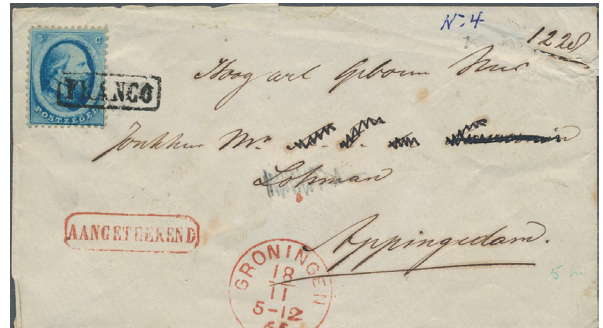 N: 4
1228
FRANCO
POSTZEGEL
Hoog wel Geboren Heer
Jonkheer Mr.
Lohman
AANGETEEKEND
Appingedam.
GRONINGEN
18
11
5-12
65
5